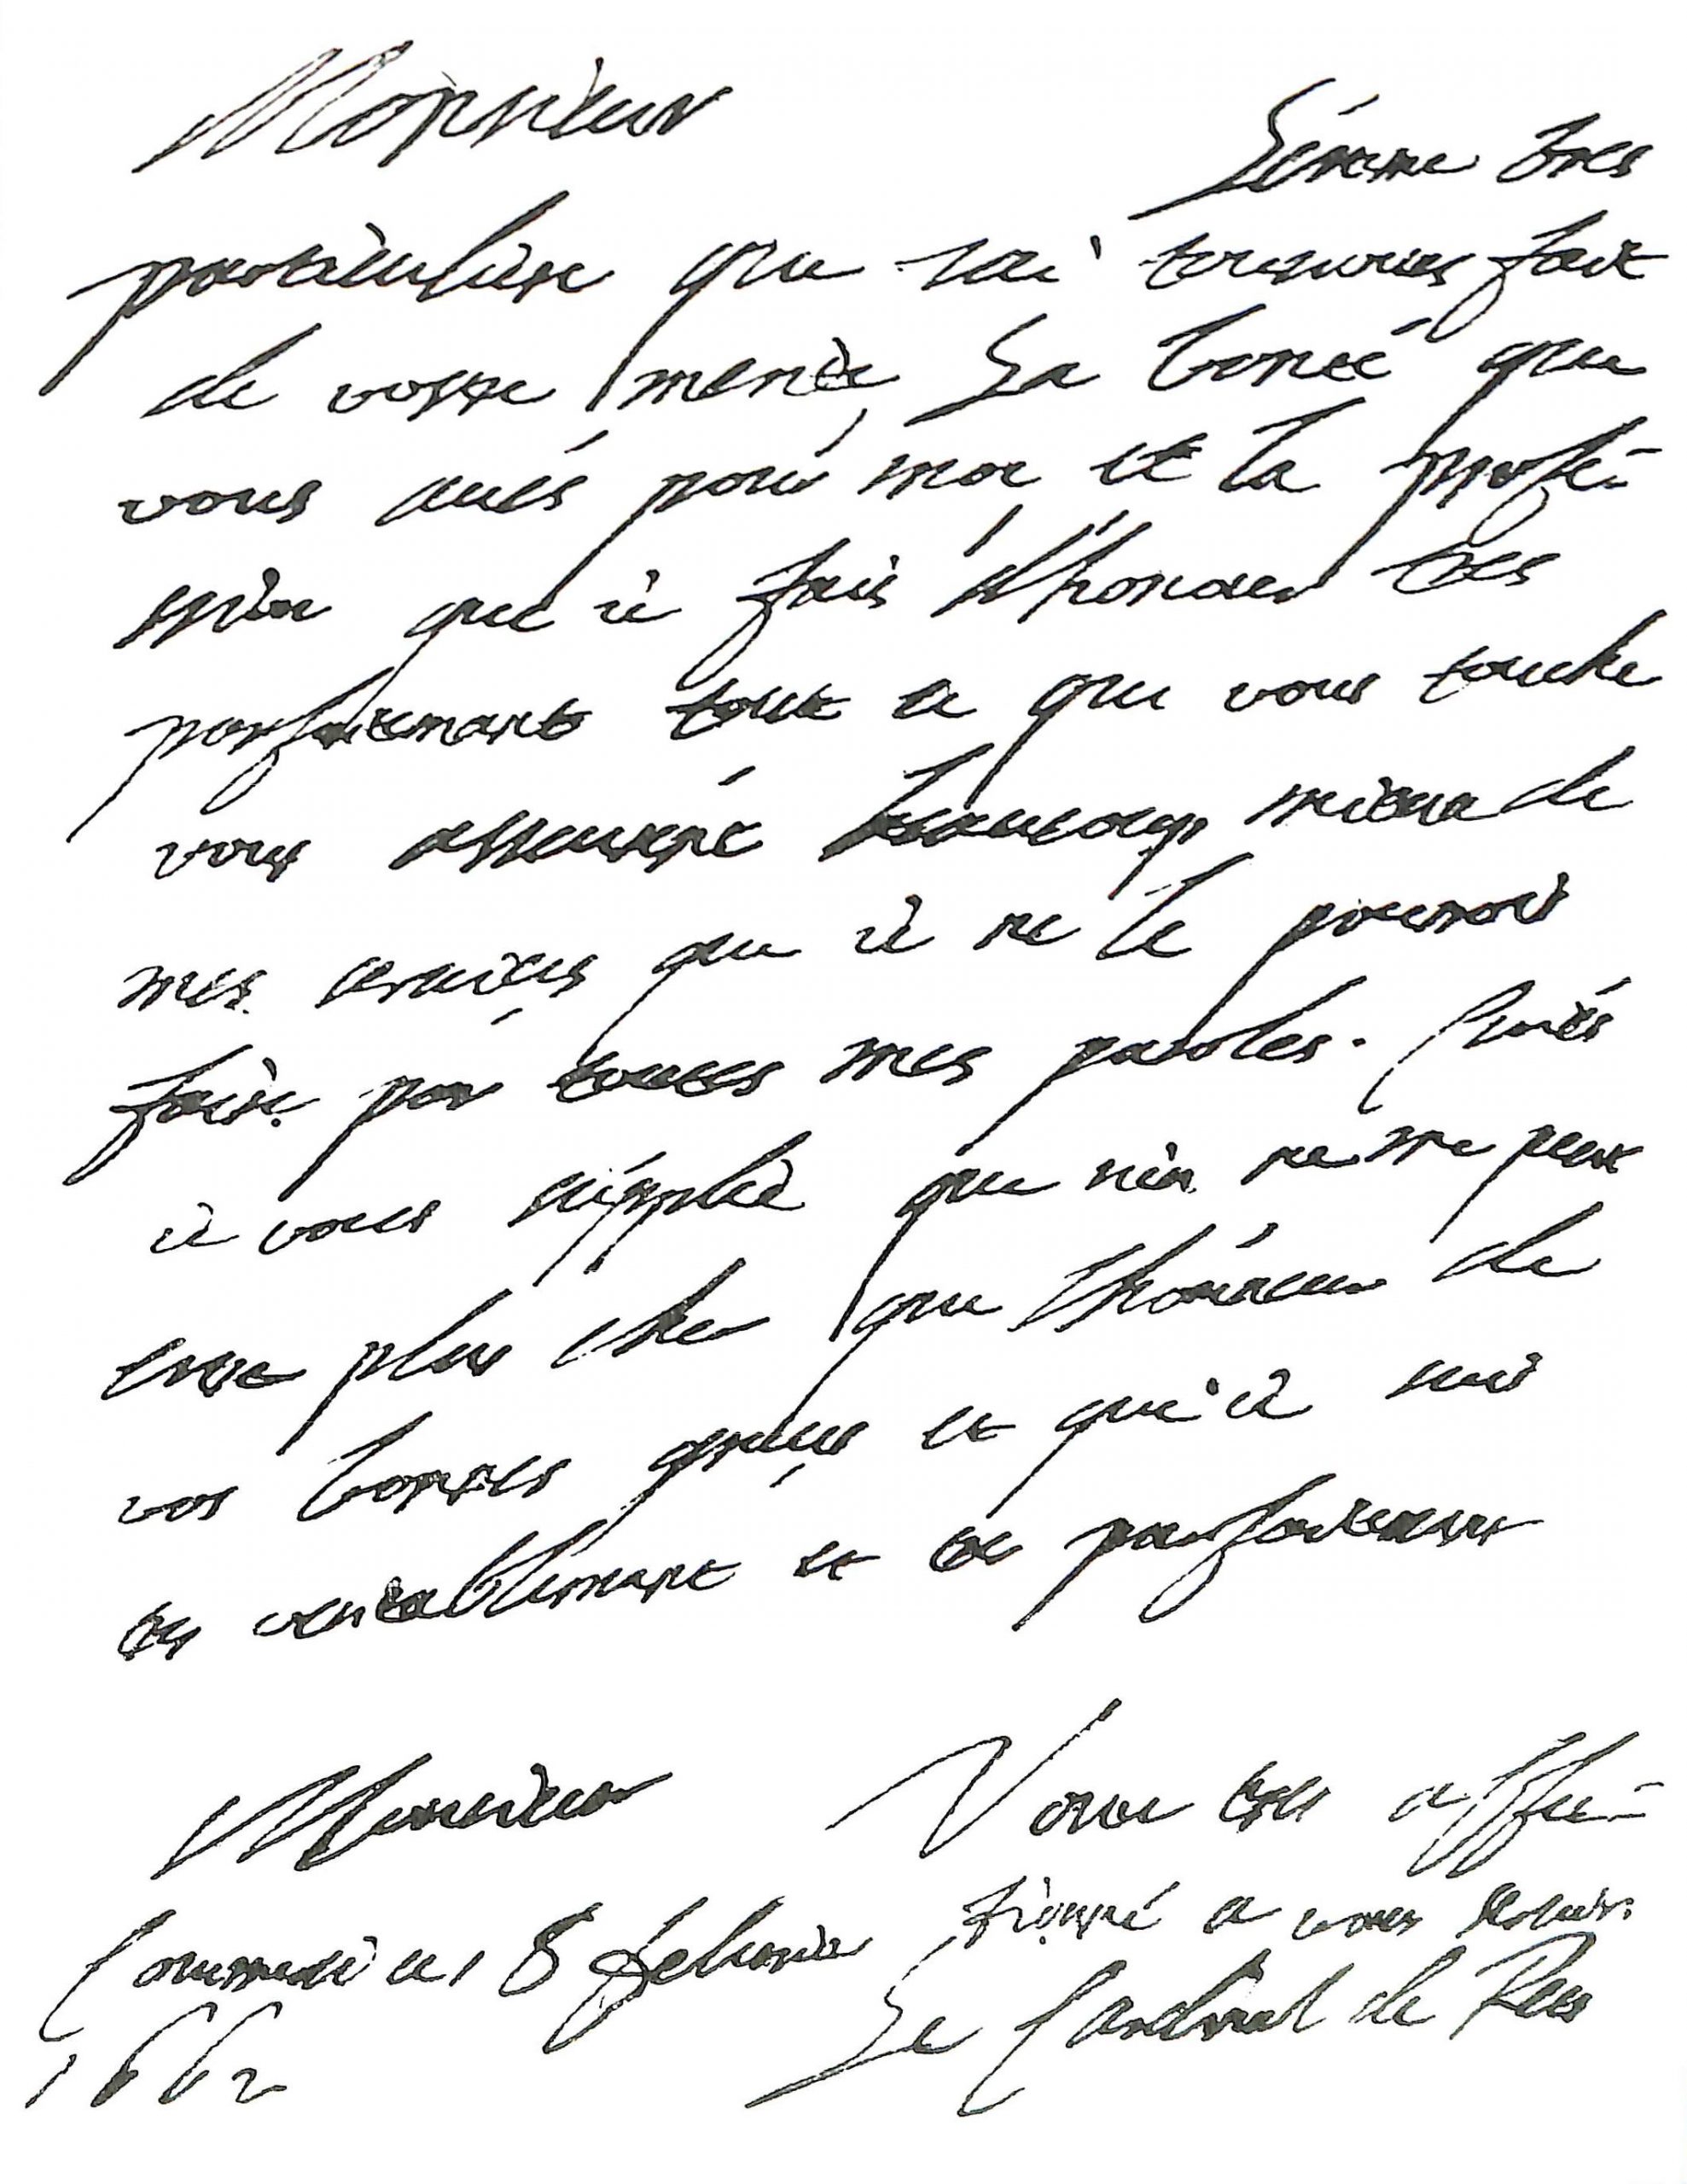 Monsieur
L'éstime tres
particuliere que i'ai tousiours fait
de vostre merite, La bonté que
vous aués pour moi et la profe-
ssion que ie fais d'honorer tres
parfaitemant tout ce qui vous touche
vous asseurera beaucoup mieux de
mes seruices que ie ne le pourrois
faire par toutes mes paroles. Croiés
ie vous supplie que rien ne me peut
estre plus cher que l'honneur de
vos bonnes graces et que ie suis
tres veritablemant et tres parfaitemant
Monsieur Vostre tres affec-
tionné a vous seruir
Commerci ce 8 feburier Le Cardinal de Rais
1662